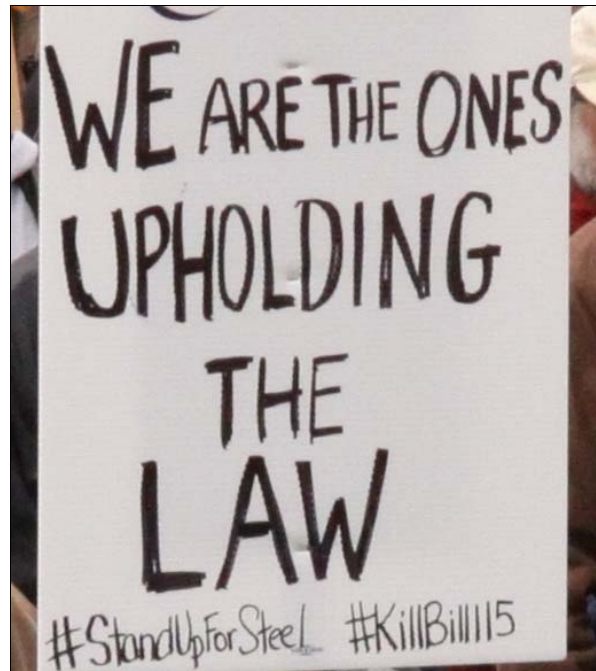 WE ARE THE ONES
UPHOLDING
THE
LAW
#StandUpForSteel #KillBill115